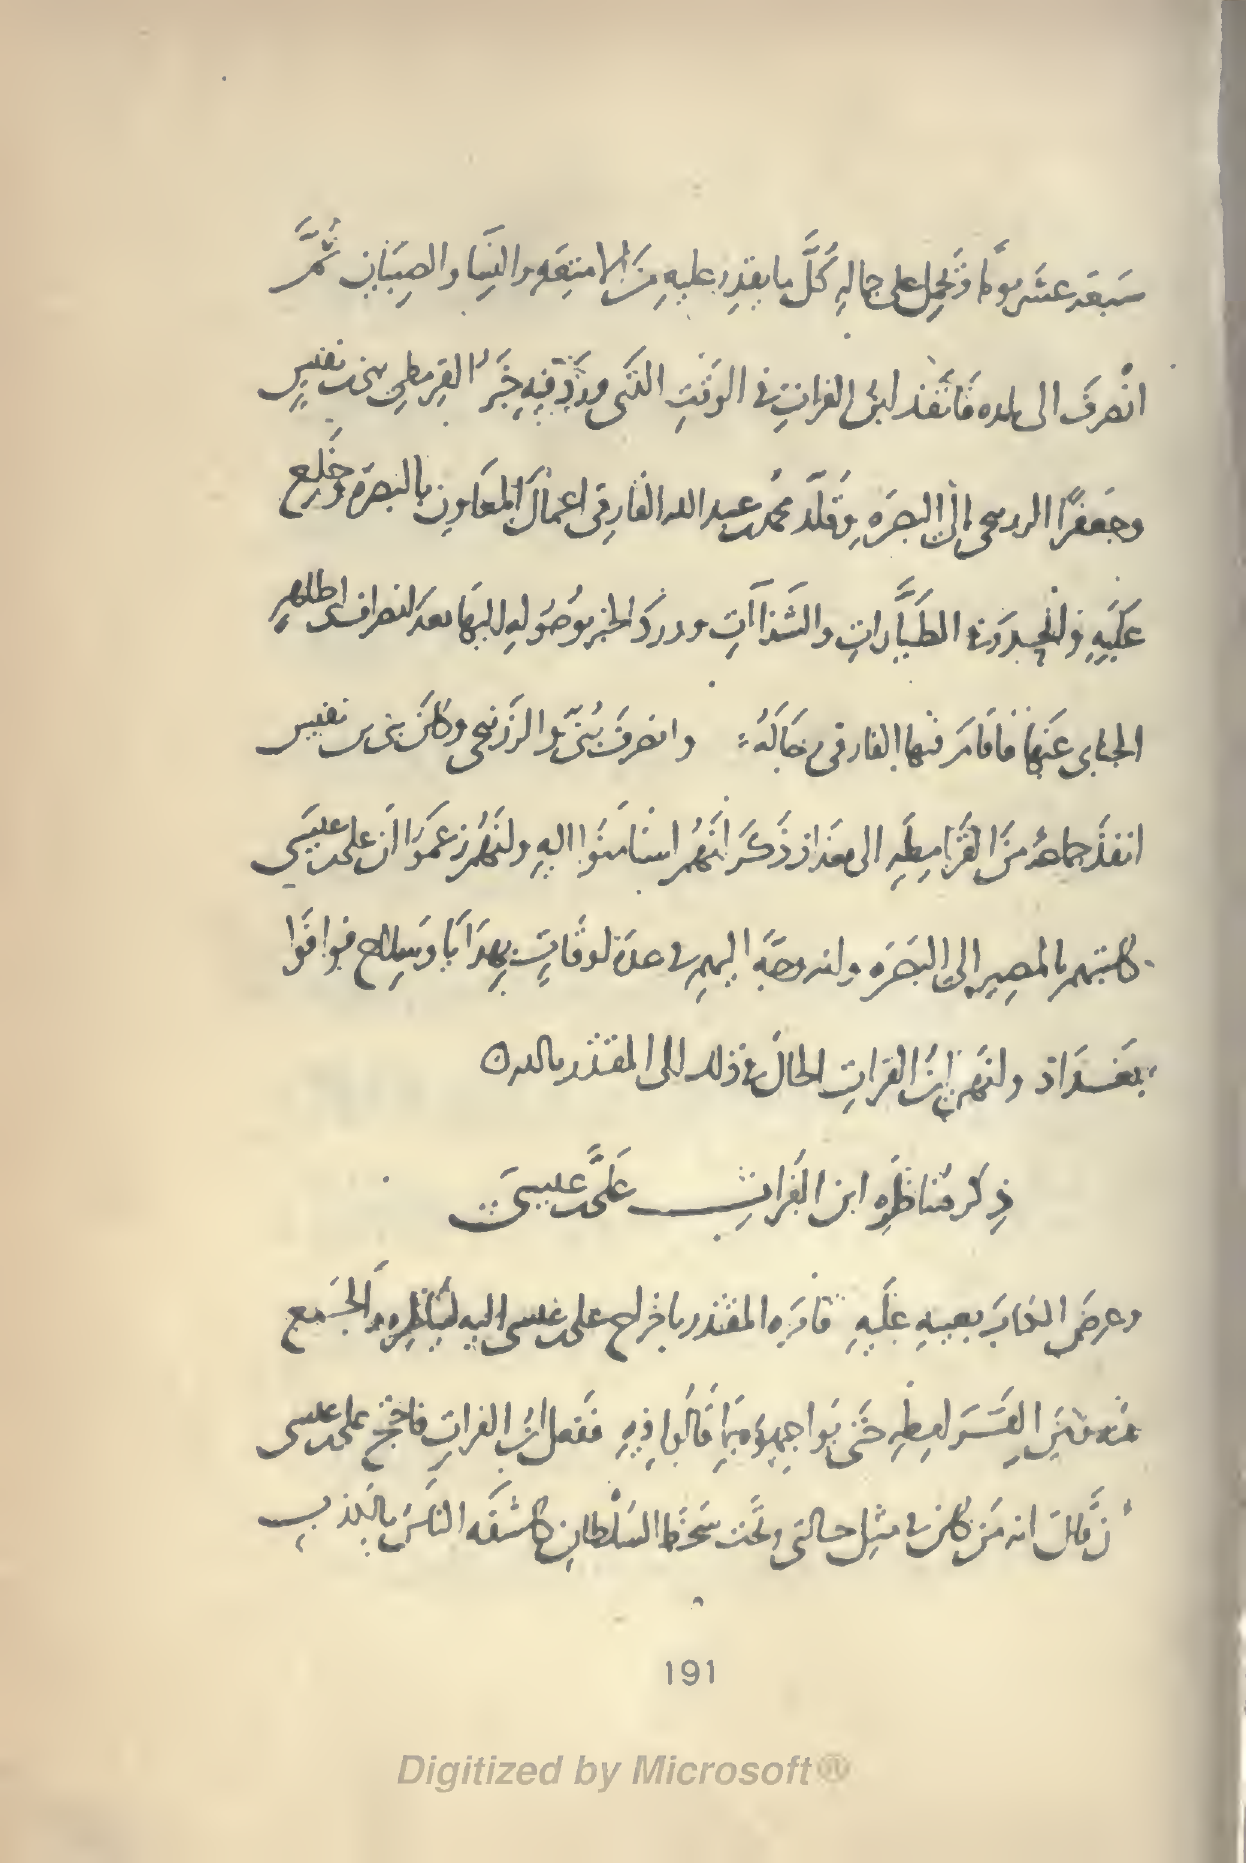 سَبعَه عشَر يومًا وَيحمِل على جمالهِ كُلَّ ما يقدِر عليهِ مِنَ الامتِعَهِ والنِسَا والصِبيَانِ ثُمَّ
انْصرفَ الى بلده فَانْفَذ ابنُ الفراتِ فى الوَقتِ الذى وردَ فيهِ خبَرُ القِرمطِى بنى بن نفيسٍ
وجَعفرًا الزرنجى إلى البصرَه وقَلَّد محمد بن عبد الله الفارقى اعمالَ المعَاونِ بالبصرَه وخَلع
عَلَيهِ وانحدرَ فى الطَيَّاراتِ والشَذَاآتِ ووردَ الخبر بوصُولِهِ اليهَا بعد انصراف ابى طاهرٍ
الجنابى عَنهَا فاقَامَ فيها الفارقى برجَالَهُ وانصرفَ بُنىّ والزرنجى وكان بنى بن نفيس
انفذَ جماعهً منَ القَرَامِطَهِ الى بغدَاذ ذَكرَ انَهُم استَامَنُوا اليهِ وانَهُم زعمَوا ان على بن عيسَى
كاتبَهم بالمصِيرِ إلى البَصرَه وانه وجَّه اليهمِ فى عدةِ اوقَاتٍ بهِدَايَا وسَلاحٍ فوافَوا
بَغدَاذ وانهَى ابنُ الفراتِ الحالَ فى ذلك الى المقتدر بالله
ذِكر مُناظَرِه ابن الفُراتِ علىَّ بن عيسىَ
وعرضَ الكتابَ بعينِهِ عليَهِ فامرَه المقتدر باخراج على بن عيسى اليه ليُناظِره والجَمع
بَينَه وبَينَ القَرَامِطَهِ حتَى يُواجِهوُه بمَا قَالُوا فيهِ ففعل ابنُ الفراتِ فاحتج على بن عيسى
بأن قالَ انه مَن كانَ فى مثِل حالتى وتَحت سَخَط السُلْطانِ كاشَفَه الناسُ بالكذبِ
191
Digitized by Microsoft®